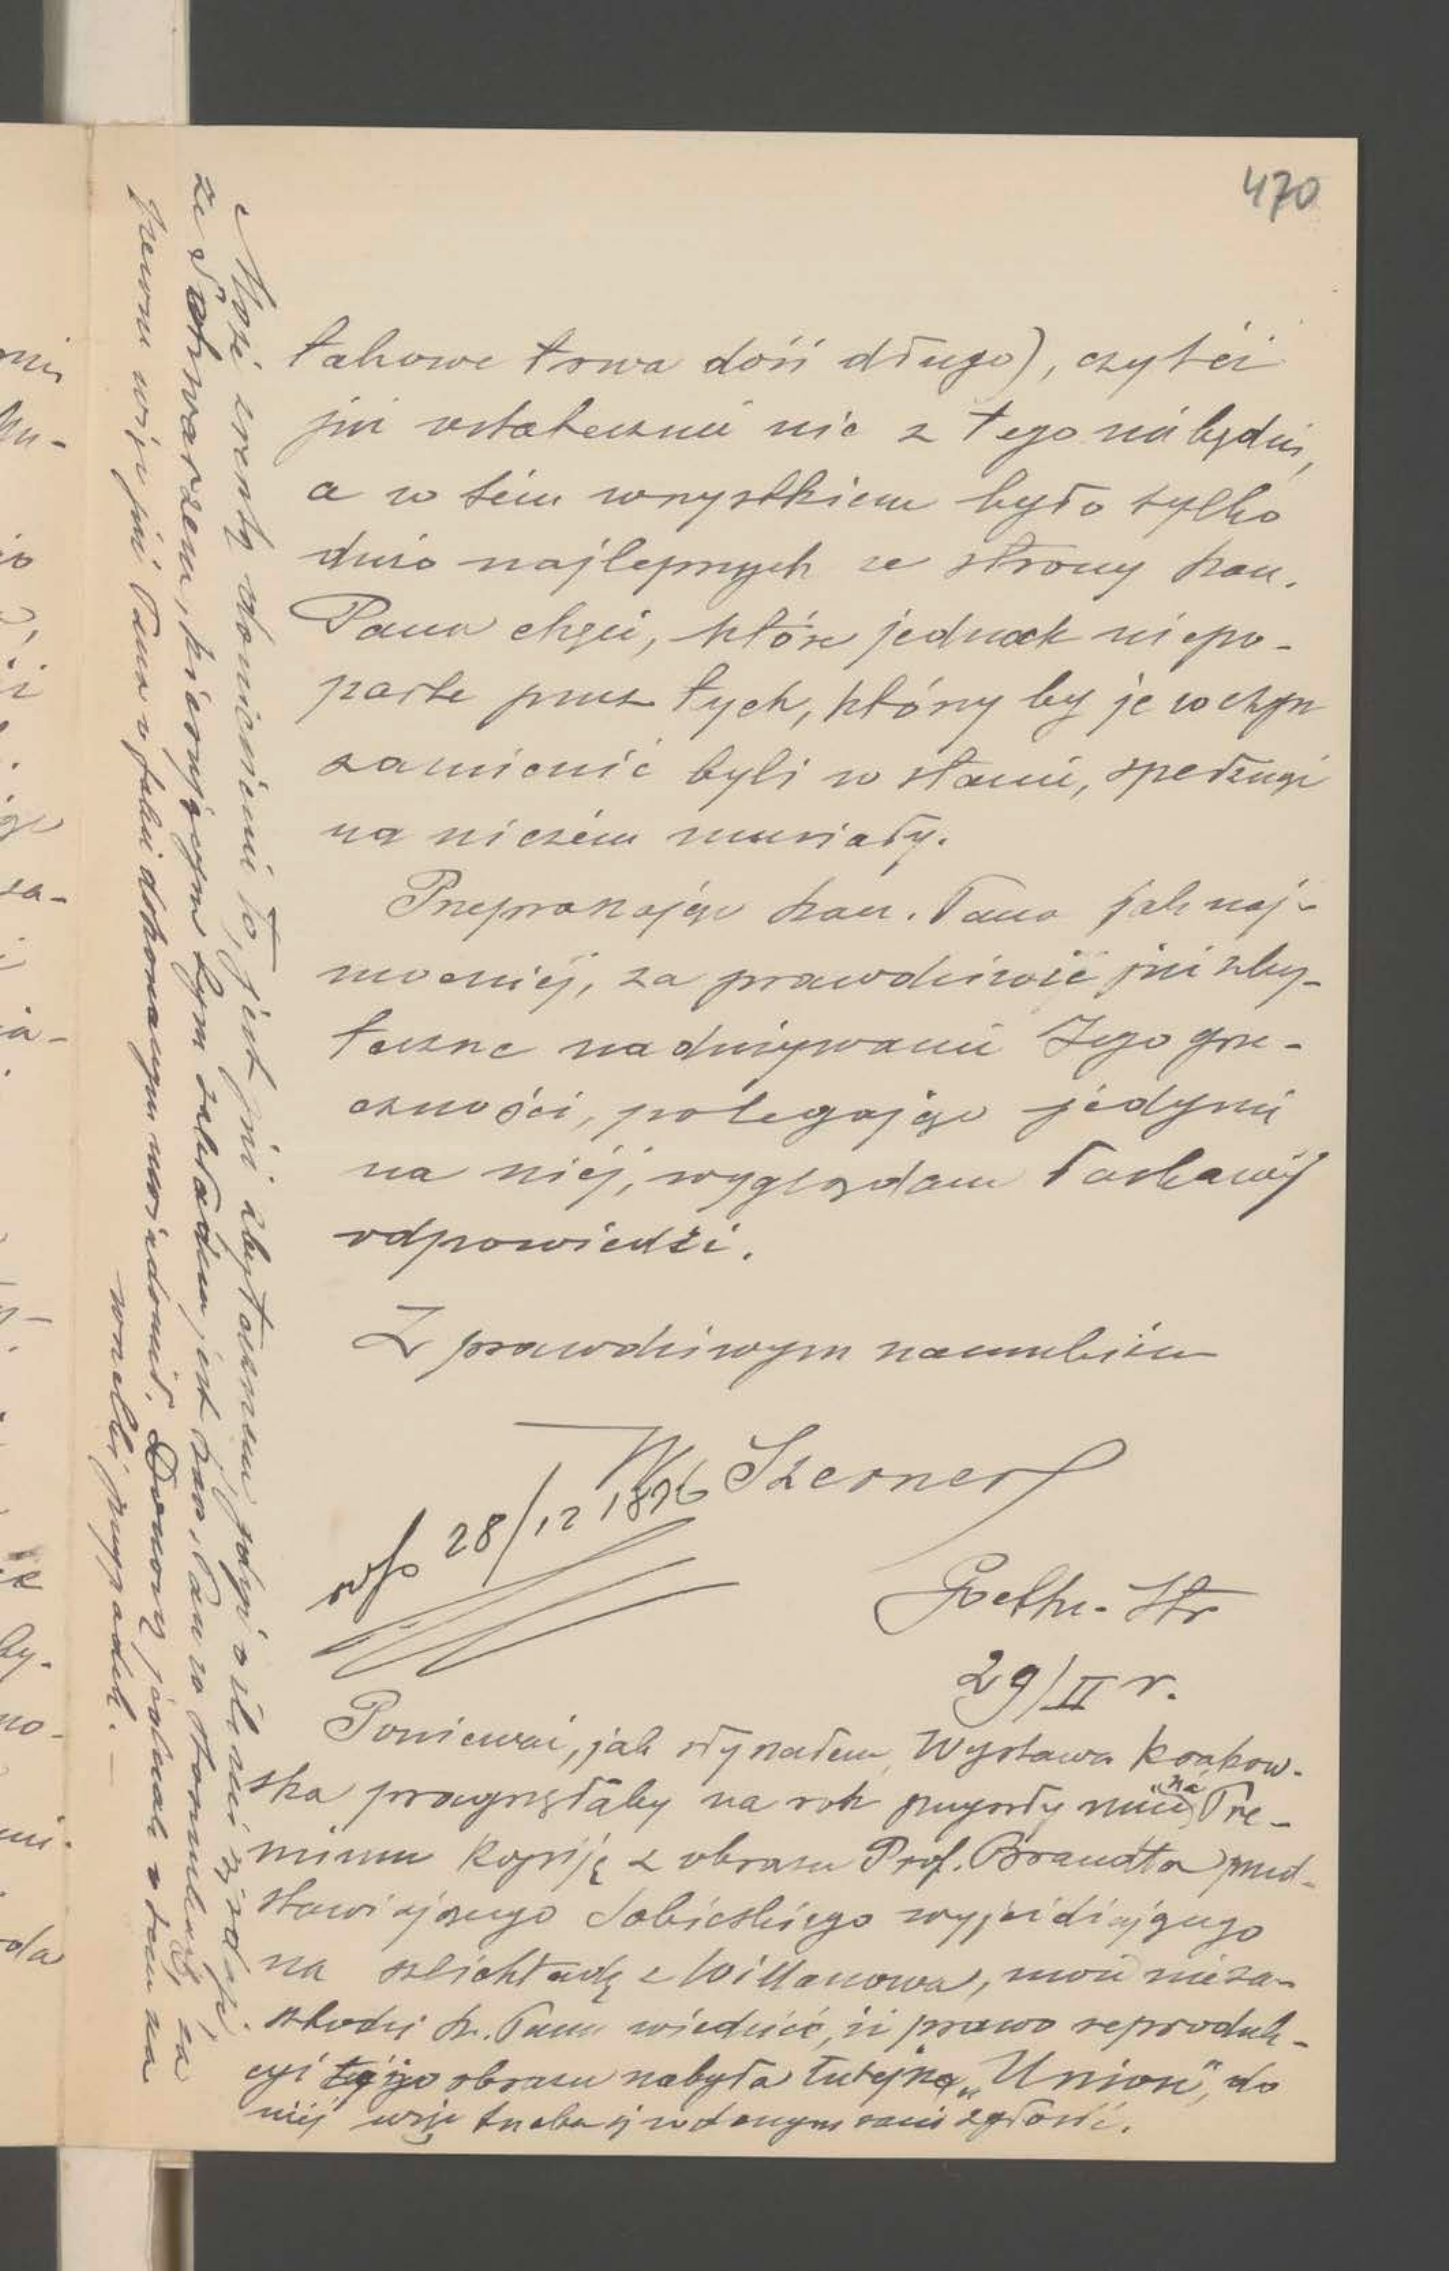 470
takowe trwa dość długo), czyteż
już ostatecznie nic z tego niebędzie,
a w tém wszystkiem było tylko
dużo najlepszych ze strony szan.
Pana chęci, które jednak niepo-
parte przez tych, którzy by je w czyn
zamienić byli w stanie, spełznąć
na niczém musiały.
Przepraszając szan. Pana jak naj-
mocniéj, za prawdziwie już zby-
teczne nadużywanie Jego grze-
czności, polegając jedynie
na niéj, wyglądam łaskawéj
odpowiedzi.
Z prawdziwym szacunkiem
W Szerner
28/12 1896
Goethe-Str
29/II r.
Ponieważ, jak słyszałem, Wystawa Krakow-
ska pragnęłaby na rok przyszły mieć "na" Pre-
mium kopiję z obrazu Prof. Brandta przed-
stawiającego Sobieskiego wyjeżdżającego
na szlichtadę z Willanowa, może nieza-
szkodzi Sz. Panu wiedzieć, iż prawo reproduk-
cyi tegoż obrazu nabyła tutejsza „Union", do
niéj więc trzeba się w danym razie zgłosić.
Może zresztą doniesienie to, jest już zbytecznem, gdyż o ile mi się zdaje
ze Schwarzem, kierującym tym zakładem, jest szan. Pan w stosunkach, za
pewne więc już Pana o fakcie dokonanym uwiadomił. Donoszę jednak o tem na
wszelki przypadek. —